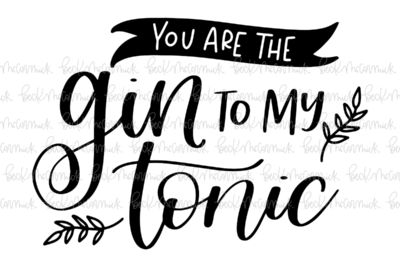 YOU ARE THE
gin TO MY
tonic